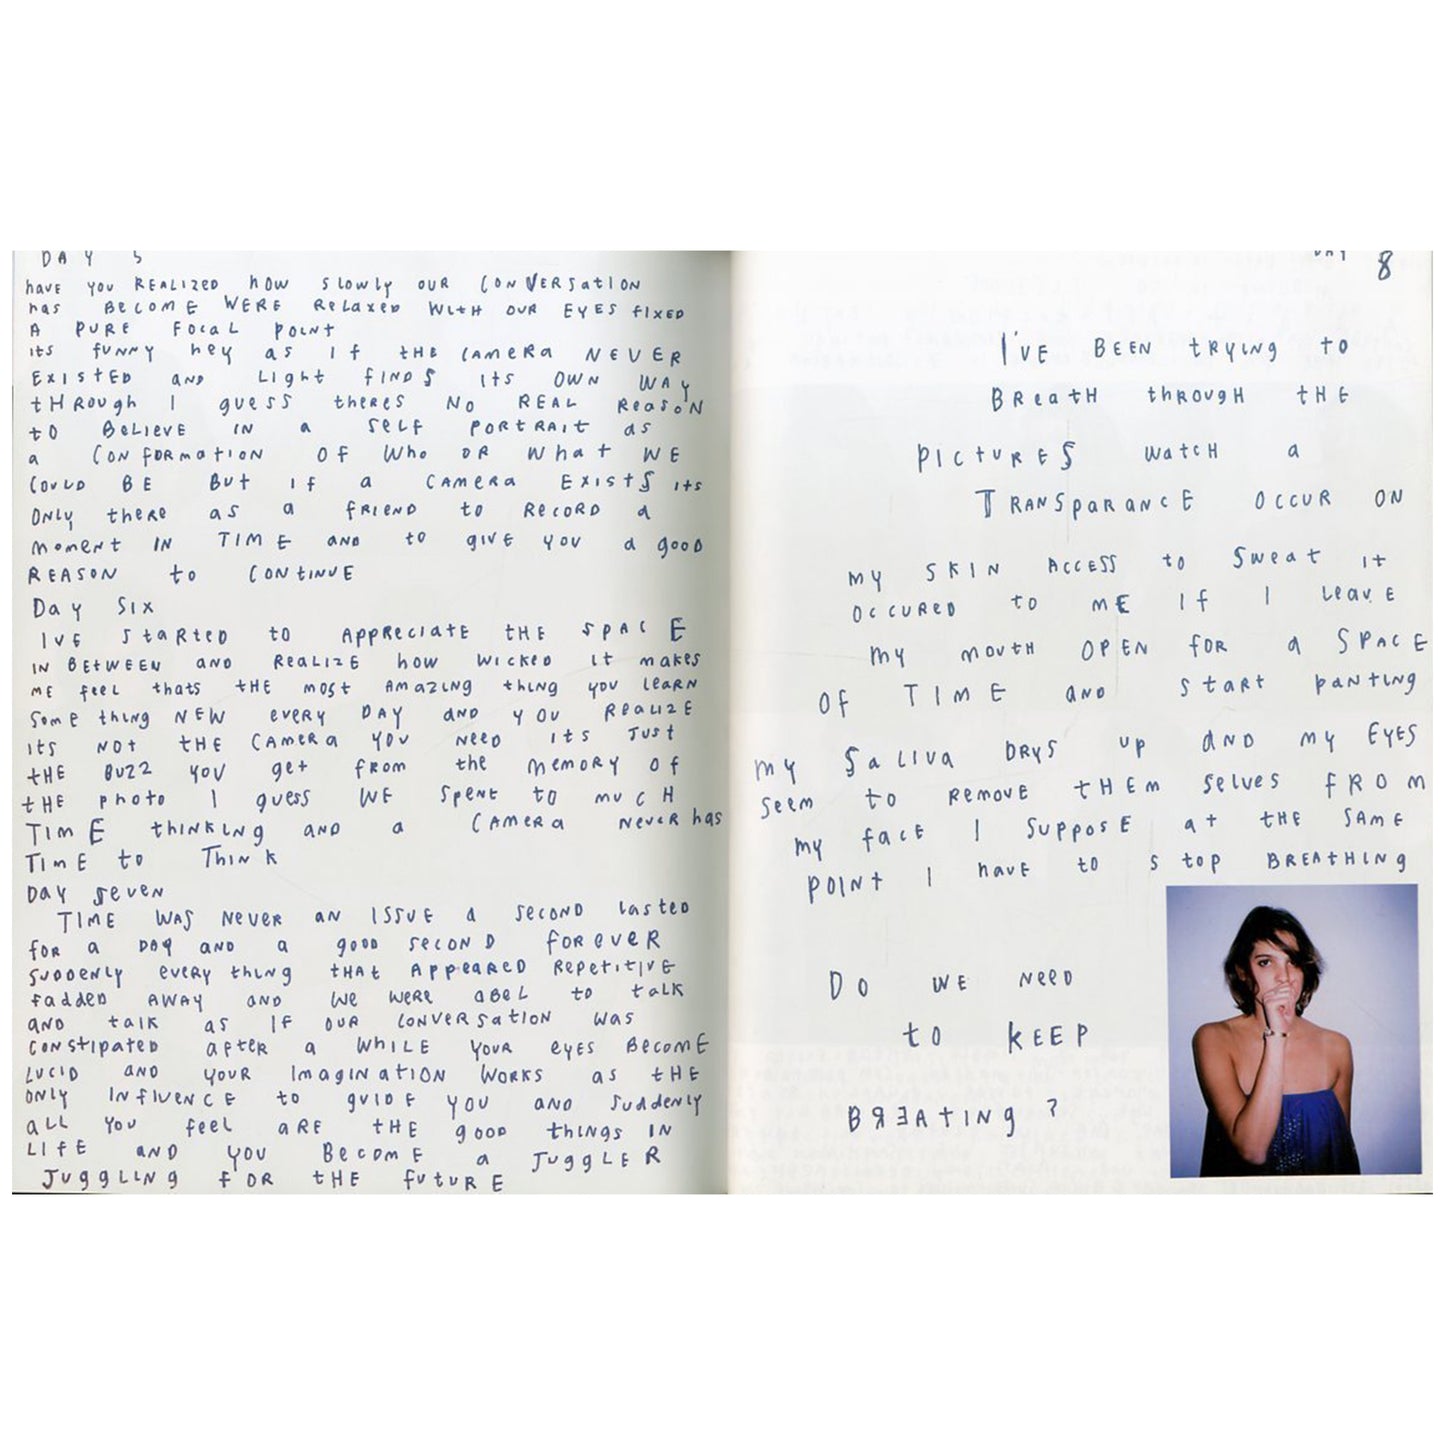 DAY 5
have you REALIZED how slowly our CONVERSATION
has BECOME WERE RELAXED WITH OUR EYES FIXED
A PURE FOCAL POINT
its funny hey as if the CAMERA NEVER
EXISTED AND LIGHT FINDS ITS OWN WAY
THROUGH I guess theres NO REAL REASON
to BELIEVE IN a SELF PORTRAIT as
a CONFORMATION OF WHO OR WHAT WE
COULD BE BUT IF a CAMERA EXISTS ITS
ONLY there as a FRIEND to RECORD a
moment IN TIME AND to GIVE YOU a good
REASON to CONTINUE
Day SIX
IVE STARTED to APPRECIATE THE SPACE
IN BETWEEN AND REALIZE how WICKED it makes
ME feel thats THE most AMAZING thing you LEARN
Some thing NEW every DAY AND YOU REALIZE
ITS NOT THE CAMERA YOU NEED ITS JUST
THE BUZZ YOU get FROM the MEMORY OF
THE photo I guess WE SPENT TO MUCH
TIME thinking AND a CAMERA NEVER has
TIME to Think
DAY SEVEN
TIME WAS NEVER AN ISSUE a SECOND lasted
FOR a DAY AND a good SECOND FOREVER
SUDDENLY every thing THAT APPEARED REPETITIVE
fadded AWAY AND WE WERE ABEL to talk
AND talk as IF OUR CONVERSATION WAS
CONSTIPATED AFTER a WHILE YOUR eyes BECOME
LUCID AND YOUR IMAGINATION WORKS as THE
ONLY INFLUENCE to GUIDE YOU AND SUDDENLY
all YOU feel ARE THE good things IN
LIFE AND YOU BECOME a JUGGLER
JUGGLING FOR THE FUTURE
DAY 8
I'VE BEEN TRYING TO
BREATH THROUGH THE
PICTURES WATCH a
TRANSPARANCE OCCUR ON
my SKIN ACCESS to SWEAT It
OCCURED to ME IF I LEAVE
my MOUTH OPEN FOR a SPACE
OF TIME AND START PANTING
my SALIVA DRYS UP AND my EYES
SEEM to REMOVE THEM selves FROM
my FACE I SUPPOSE at THE SAME
POINT I have to stop BREATHING
DO WE NEED
to KEEP
BREATING ?